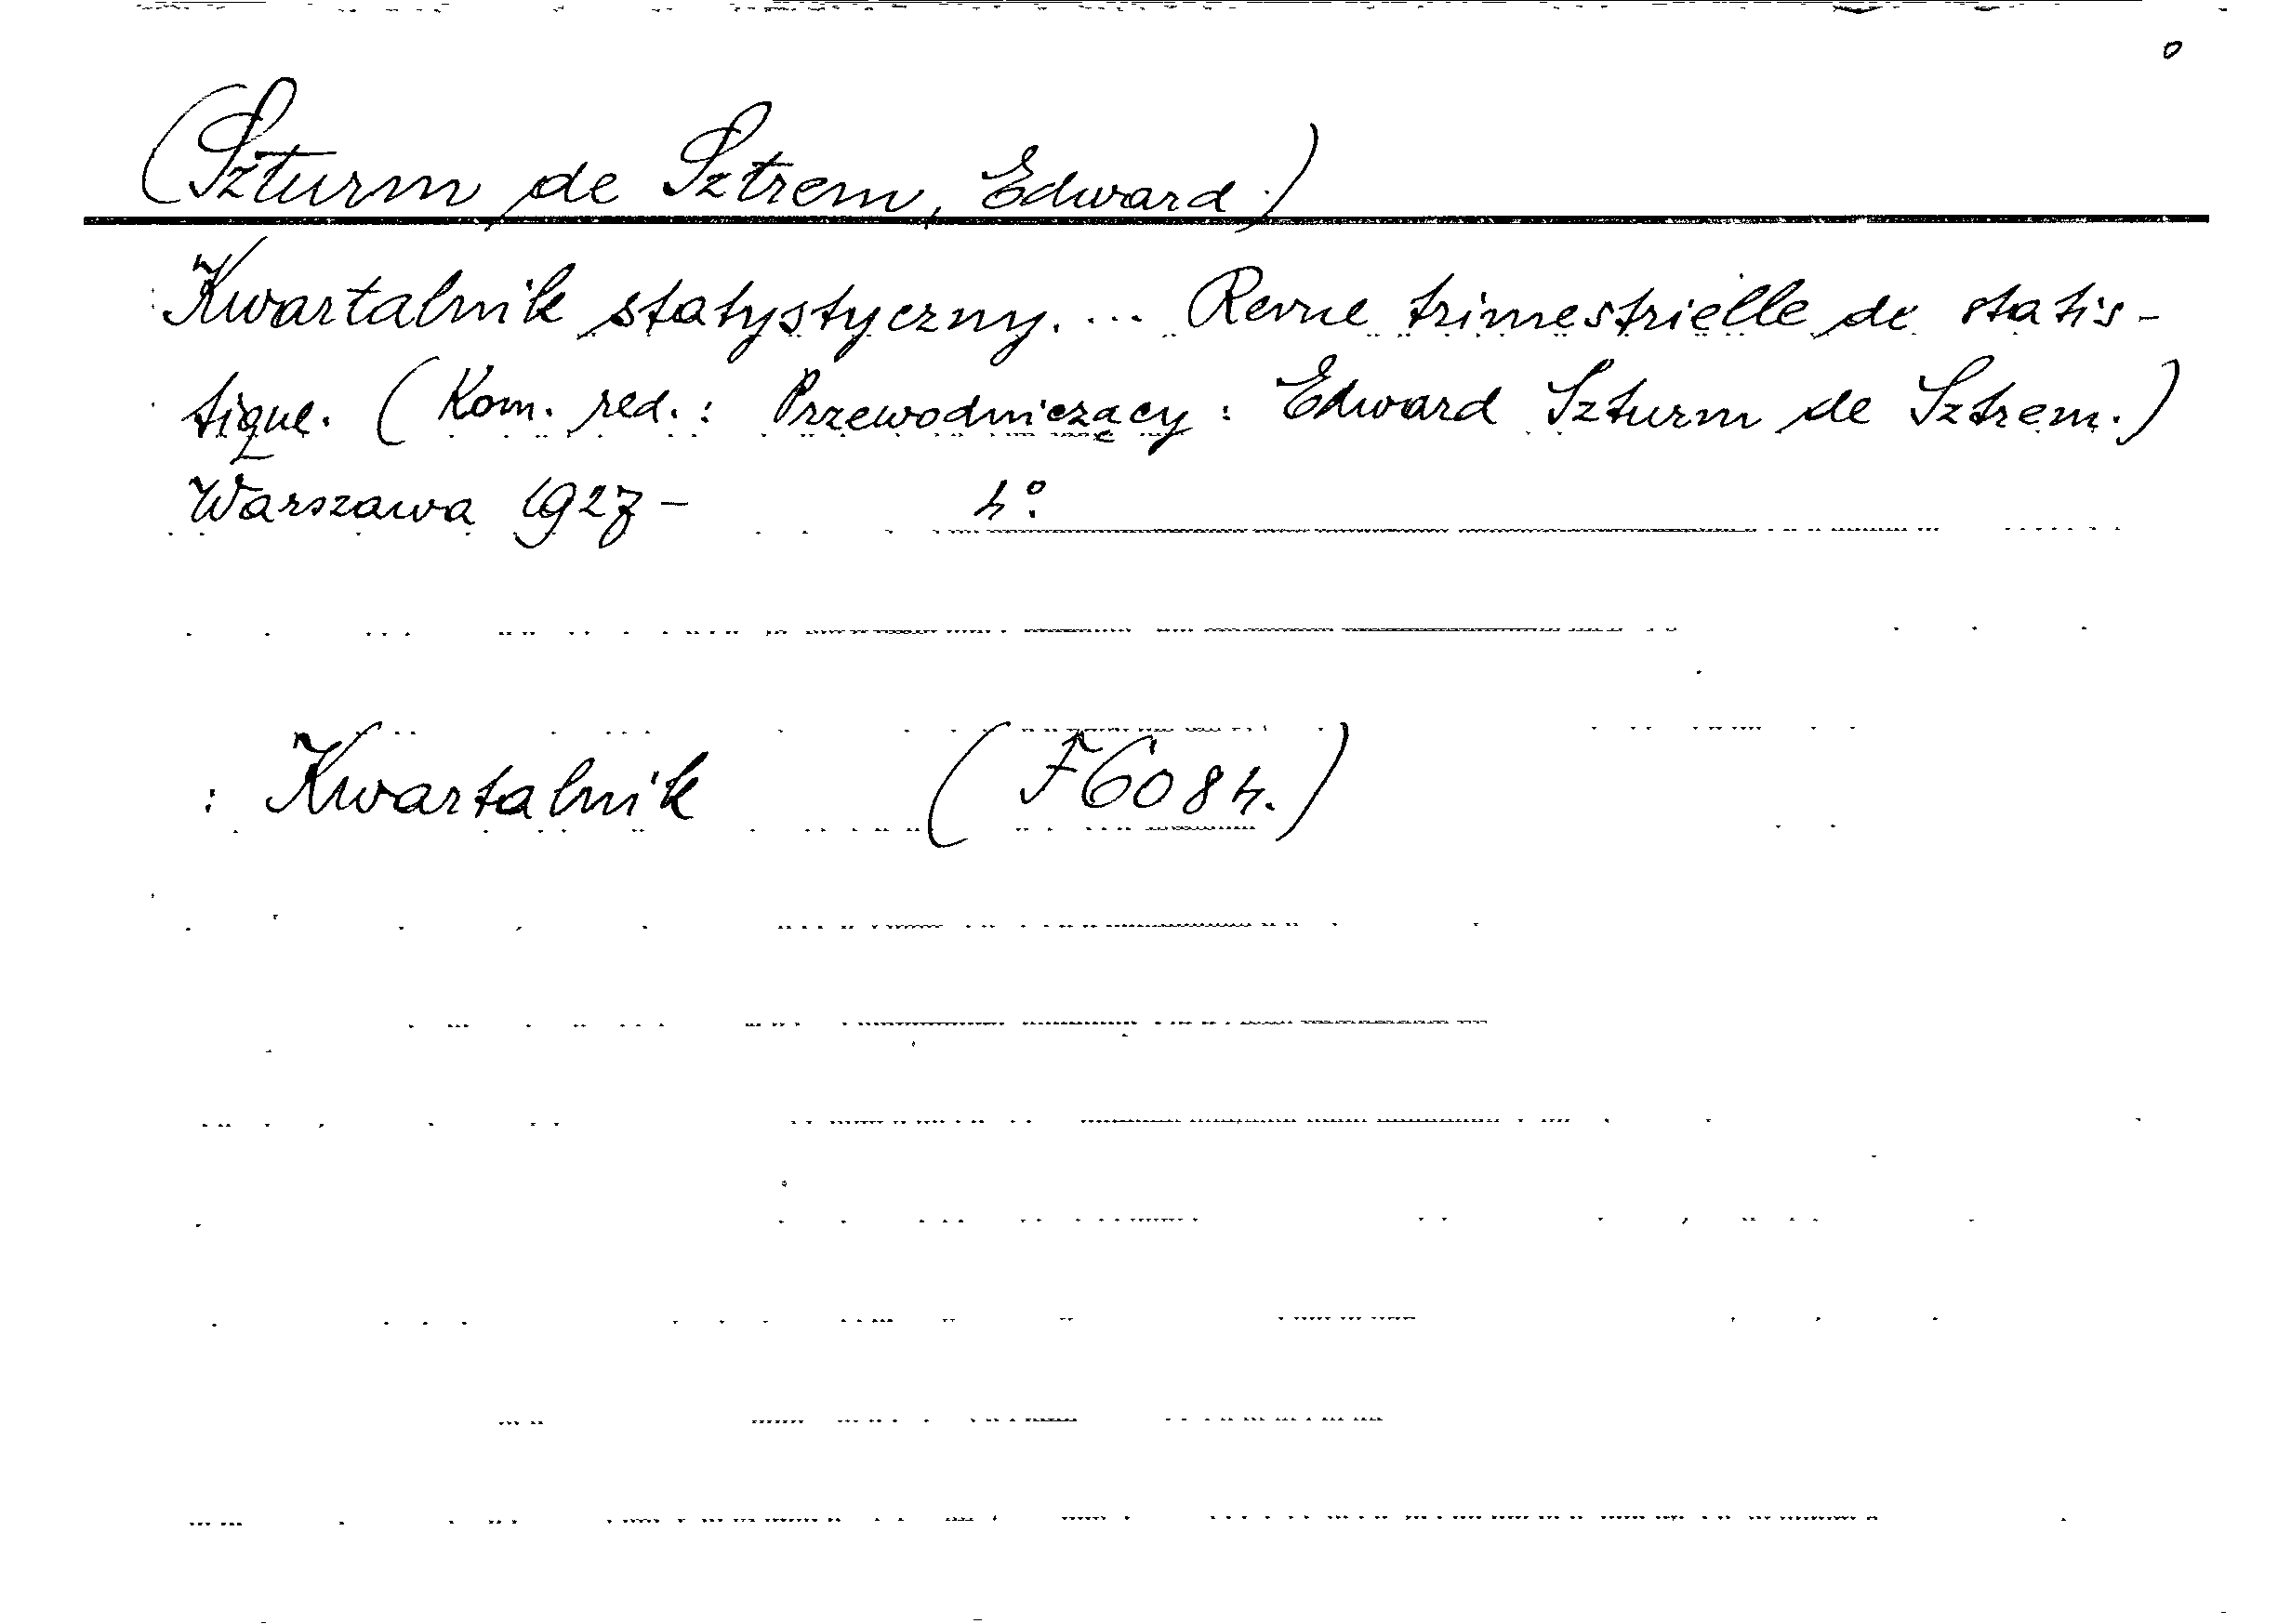 (Szturm de Sztrem, Edward.)
Kwartalnik statystyczny. ... Revue trimestrielle de statis-
tique. (Kom. red.: Przewodniczący: Edward Szturm de Sztrem.)
Warszawa 1927- 4:o
: Kwartalnik (F6084.)